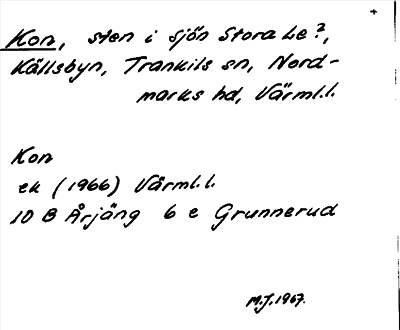 Kon, sten i sjön Stora Le?,
Källsbyn, Trankils sn, Nord-
marks hd, Värml.l.
Kon
ek (1966) Värml.l.
10 B Årjäng 6 e Grunnerud
M.J. 1967.